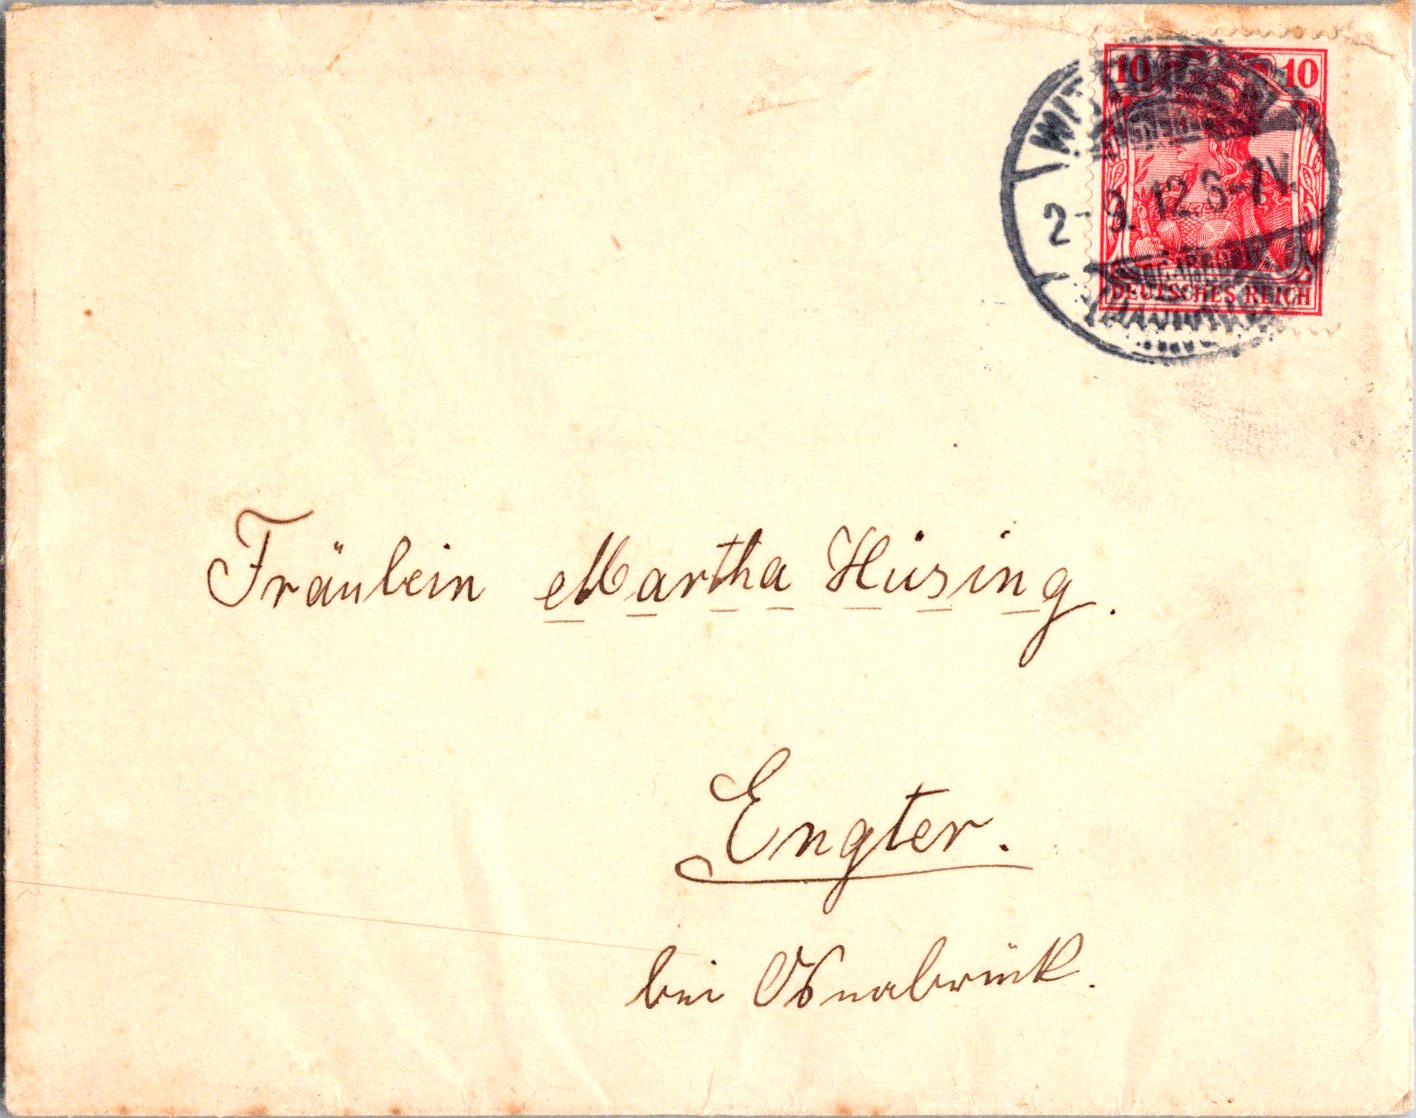 10 10
2-9.12.6-7N.
DEUTSCHES REICH
Fräulein Martha Hüsing.
Engter.
bei Osnabrück.